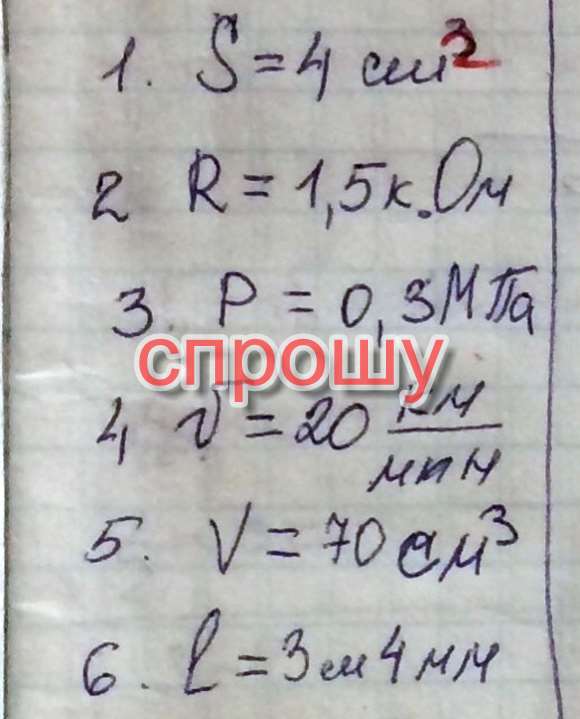 1. S = 4 см²
2 R = 1,5 к.Ом
3. P = 0,3 МПа
спрошу
4, v = 20 км/мин
5. V = 70 см³
6. l = 3 м 4 мм